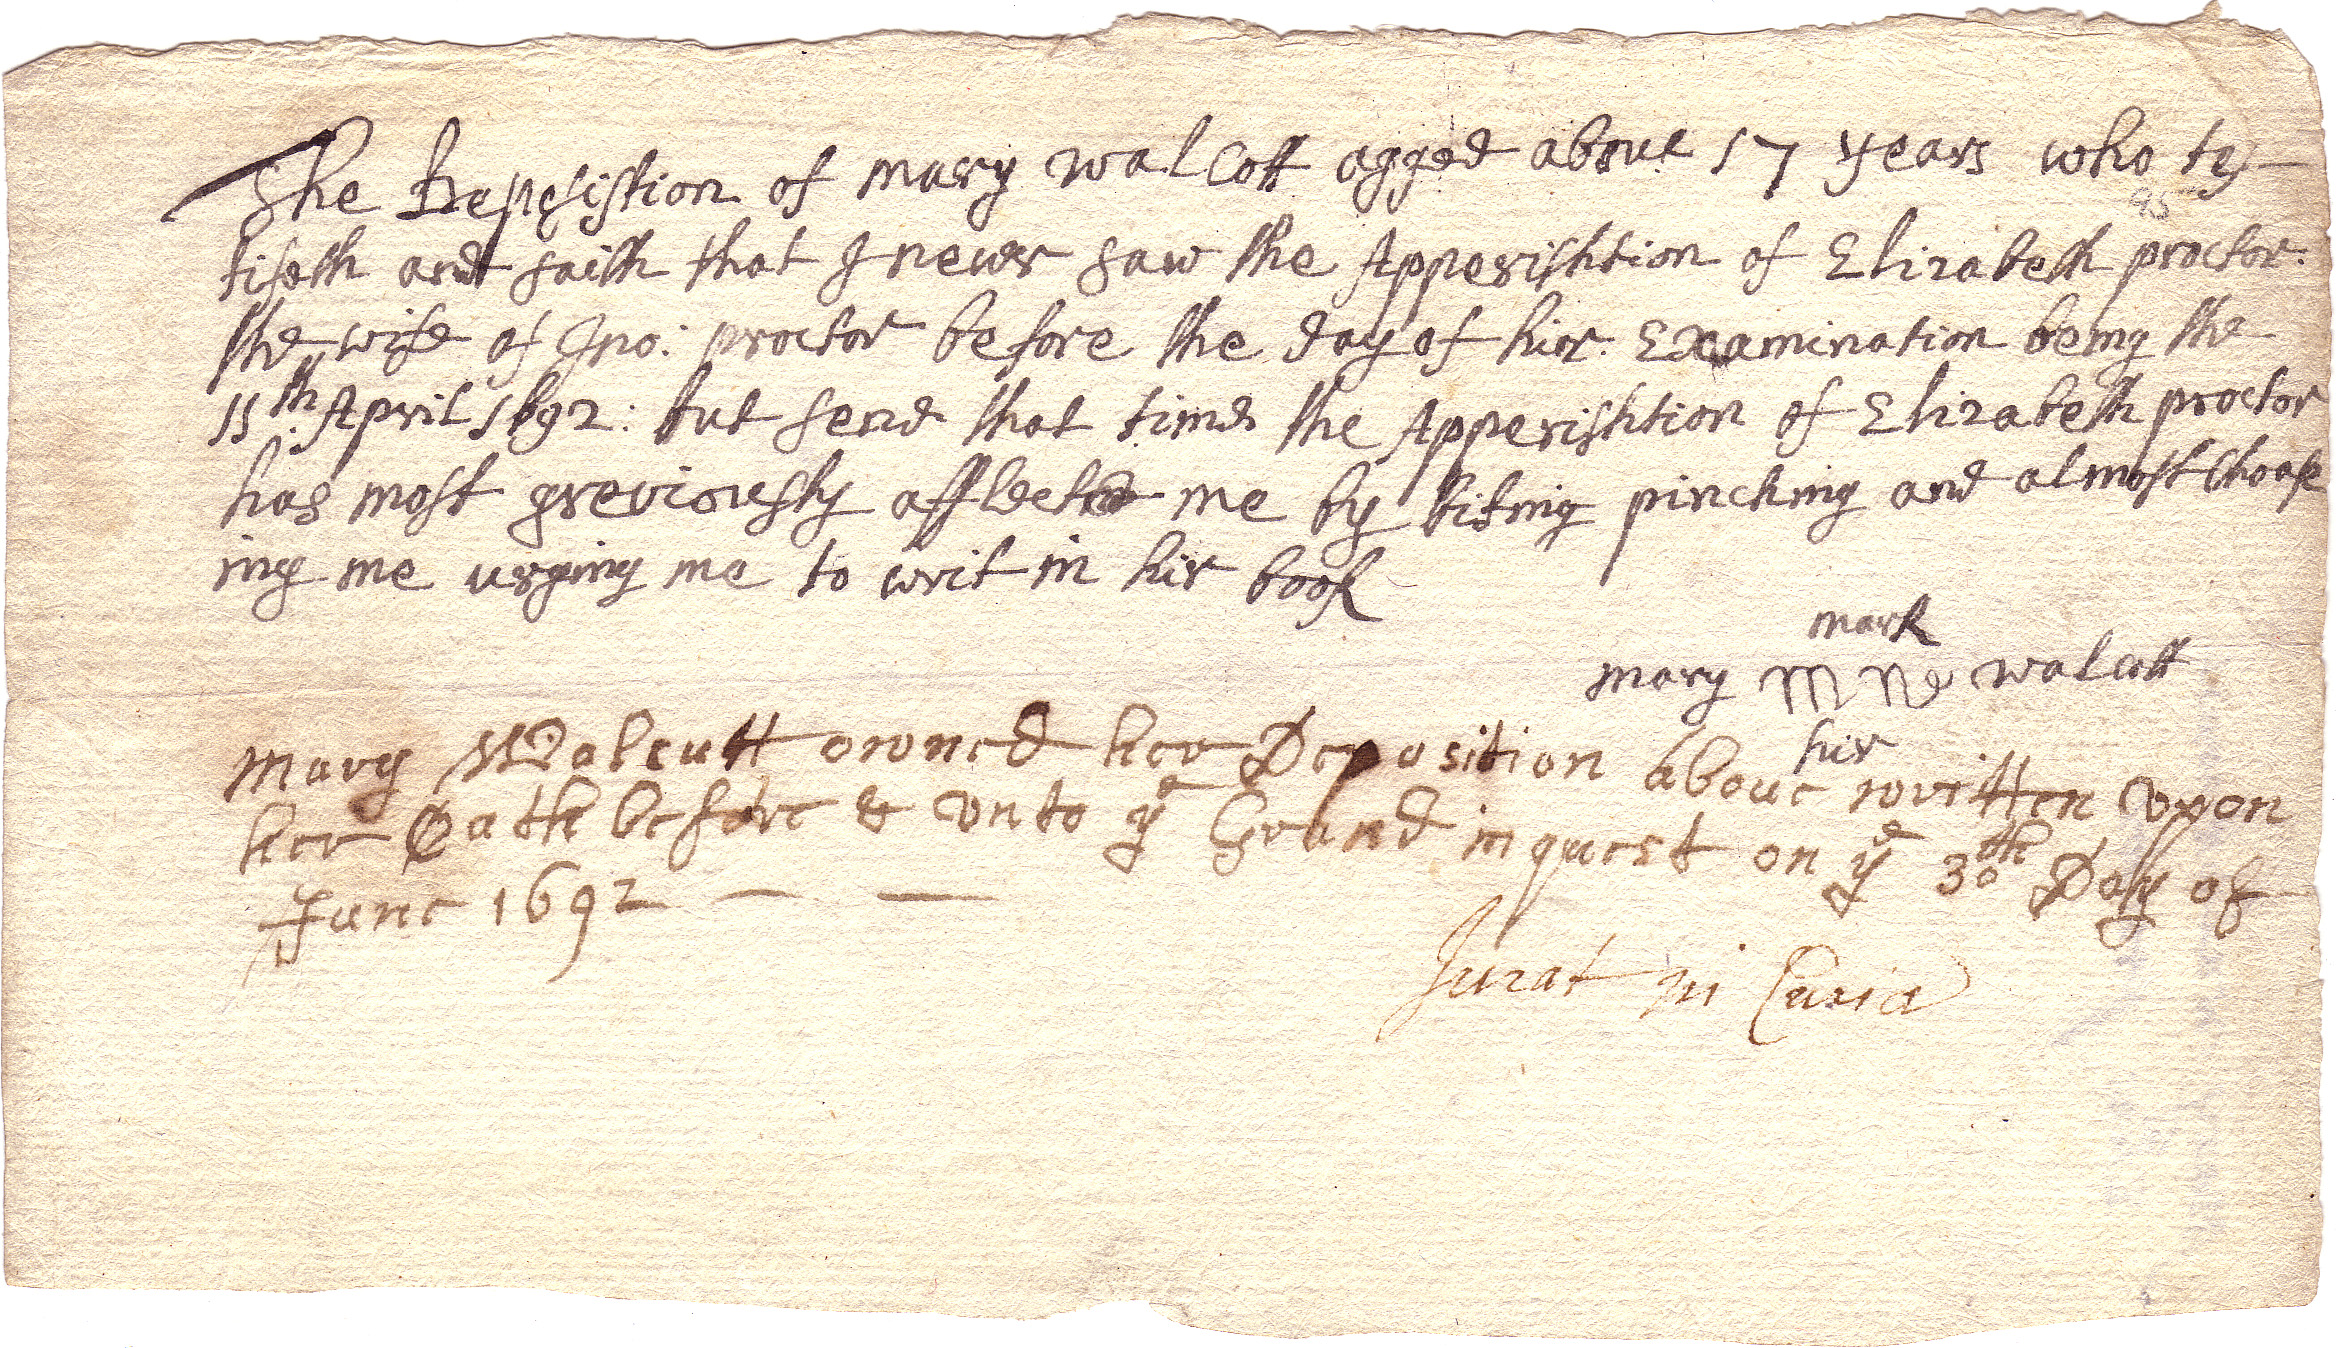 The Depesistion of mary walcott agged about 17 years who tes-
tifeth and saith that I never saw the Apperishtion of Elizabeth procktor:
the wife of Jno: proctor before the day of hir: Examination being the
11th: April 1692: but senc that time the Apperishtion of Elizabeth proctor
has most greviously affleted me by biting pinching and almost choak
ing me urging me to writ in hir book
mark
mary walcott
hir
Mary Walcutt owned her Deposition aboue written vpon
her Oath before & vnto ye Grand inquest on ye 30th Day of
June 1692
Jurat in Curia